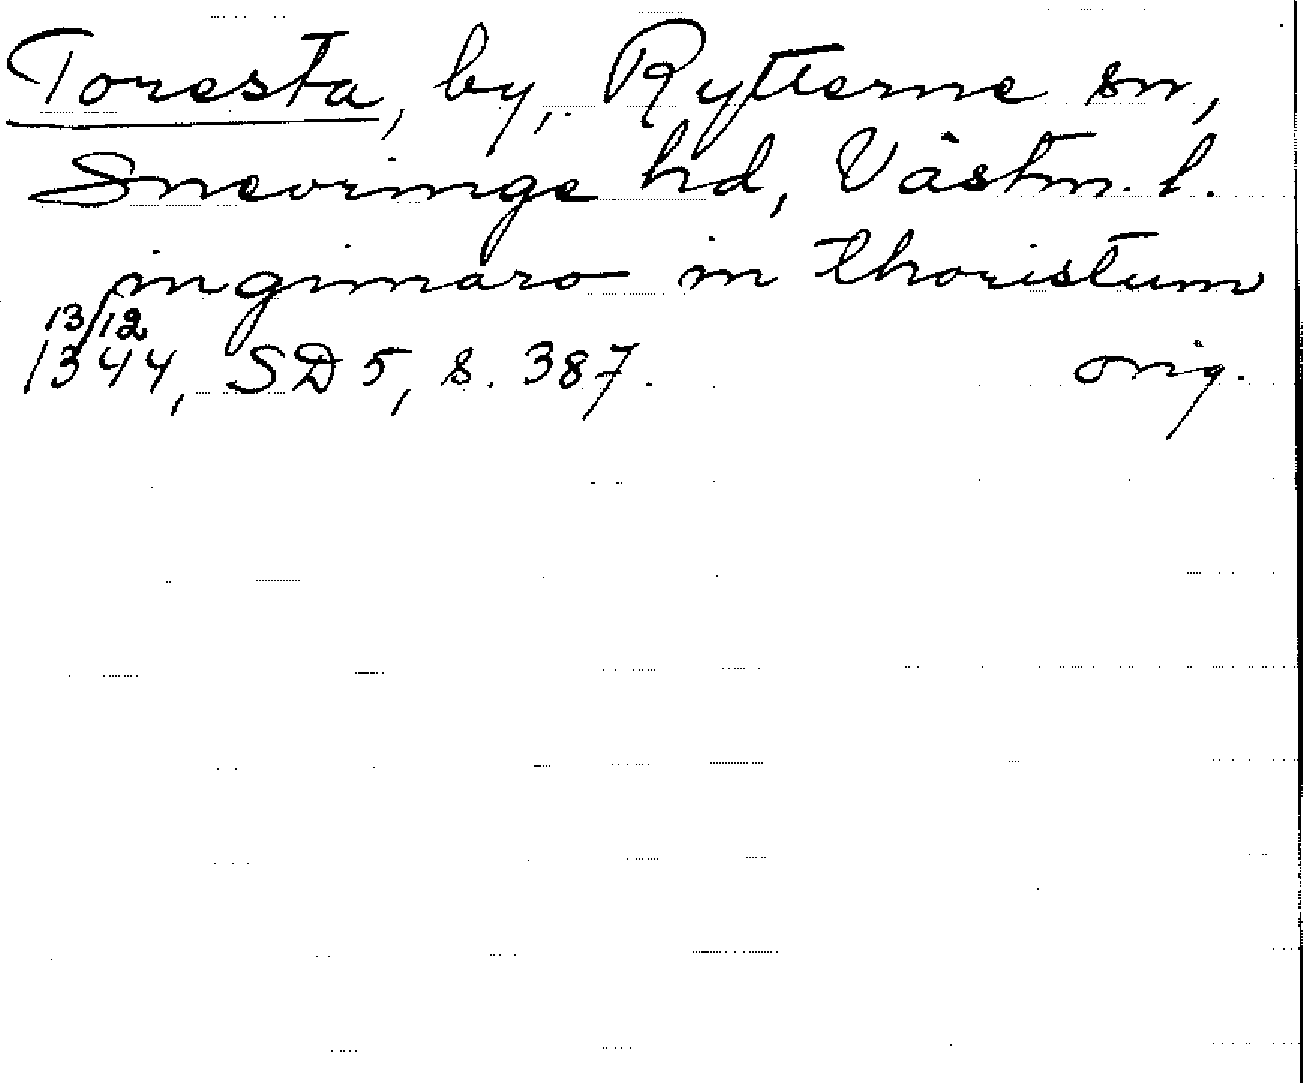 Toresta, by, Rytterne sn,
Snevringe hd, Västm. l.
ingimaro in thoristum
13/12
1344, SD 5, s. 387. orig.